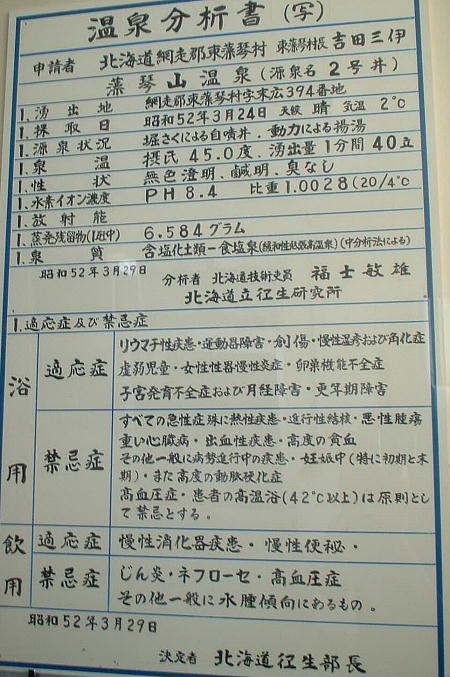 温泉分析書(写)
申請者 北海道網走郡東藻琴村 東藻琴村長 吉田三伊
藻琴山温泉(源泉名2号井)
1.湧出地 網走郡東藻琴村字末広394番地
1.採取日 昭和52年3月24日 天候 晴 気温 2℃
1.源泉状況 堀さくによる自噴井.動力による揚湯
1.泉温 摂氏45.0度.湧出量1分間40立
1.性状 無色澄明.鹹明.臭なし
1.水素イオン濃度 PH8.4 比重1.0028(20/4℃
1.放射能
1.蒸発残留物(1瓩中) 6.584グラム
1.泉質 含塩化土類-食塩泉(緩和性低張高温泉)(中分析法による)
昭和52年3月29日
分析者 北海道技術吏員 福士敏雄
北海道立衛生研究所
1.適応症及び禁忌症
浴用
適応症
リウマチ性疾患・運動器障害・創傷・慢性湿疹および角化症
虚弱児童・女性性器慢性炎症・卵巣機能不全症
子宮発育不全症および月経障害・更年期障害
禁忌症
すべての急性症殊に熱性疾患・進行性結核・悪性腫瘍
重い心臓病・出血性疾患・高度の貧血
その他一般に病勢進行中の疾患・妊娠中(特に初期と末
期)・また高度の動脉硬化症
高血圧症・患者の高温浴(42℃以上)は原則とし
て禁忌とする。
飲用
適応症 慢性消化器疾患・慢性便秘・
禁忌症 じん炎・ネフローセ・高血圧症
その他一般に水腫傾向にあるもの。
昭和52年3月29日
決定者 北海道衛生部長